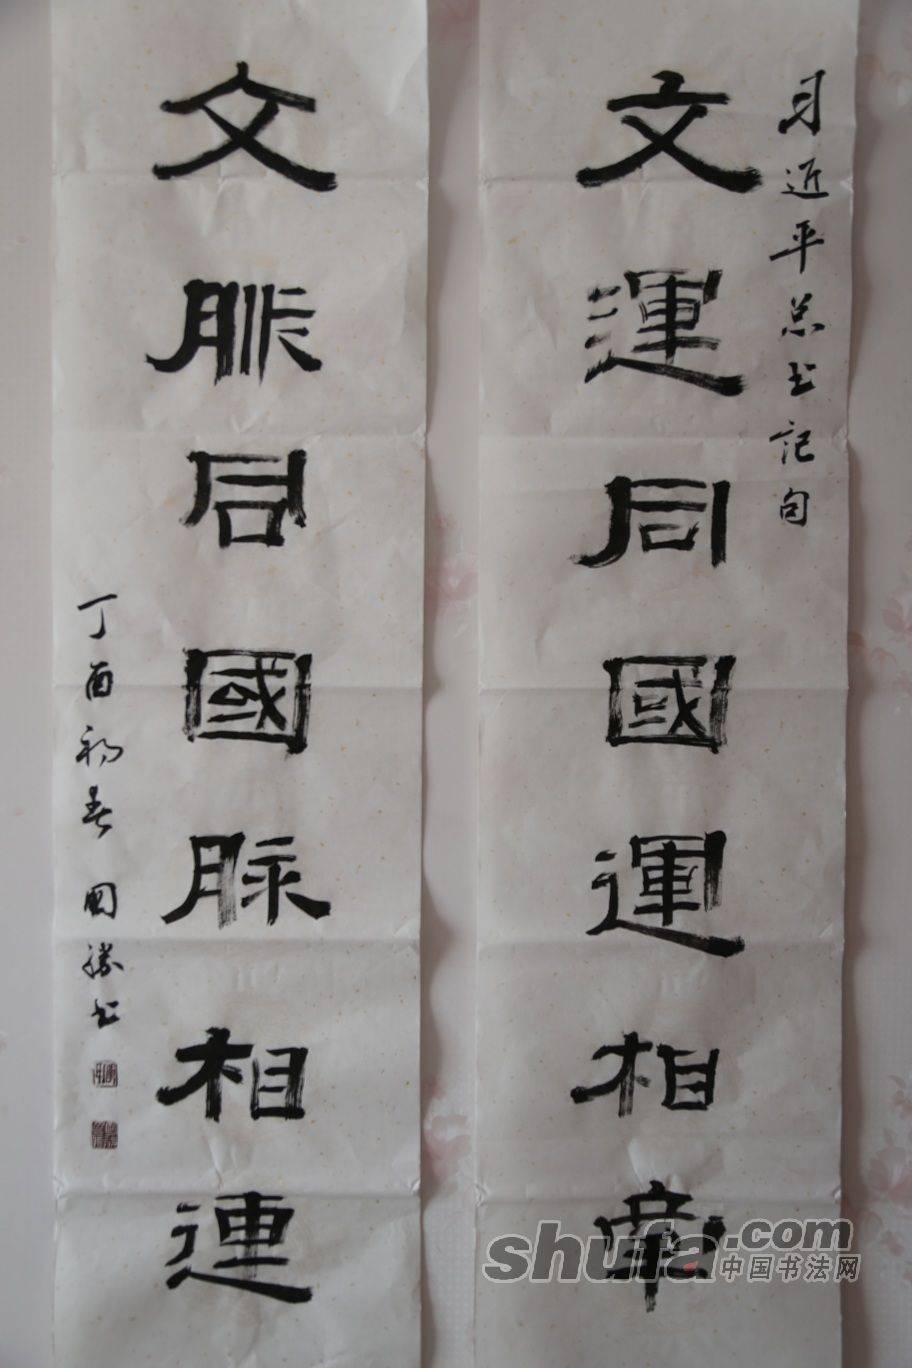 习近平总书记句
文運同國運相牽
文脈同國脉相連
丁酉初春国勝书
shufa.com
中国书法网